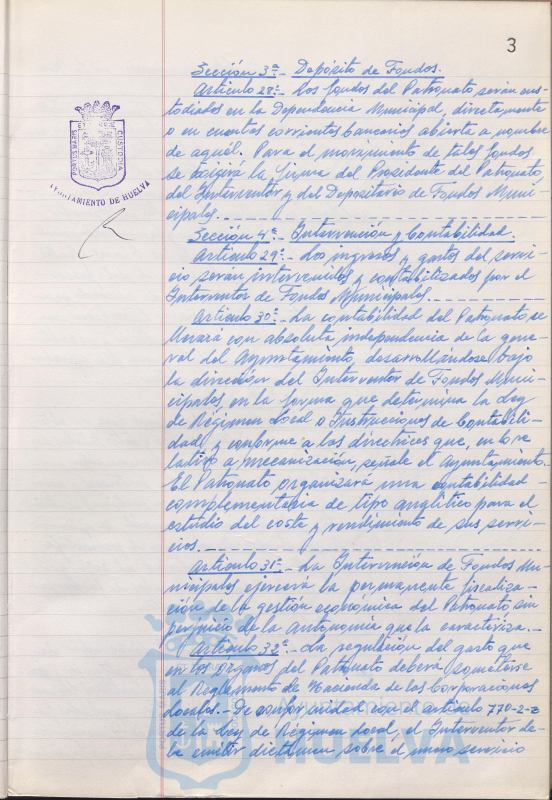 3
Sección 3ª.- Depósito de Fondos.
Artículo 28º.- Los fondos del Patronato serán cus-
todiados en la Dependencia Municipal, directamente
o en cuentas corrientes bancarias abierta a nombre
de aquél. Para el movimiento de tales fondos
se exigirá la firma del Presidente del Patronato,
del Interventor y del Depositario de Fondos Muni-
cipales.
Sección 4ª.- Intervención y Contabilidad.
Artículo 29º.- Los ingresos y gastos del servi-
cio serán intervenidos y contabilizados por el
Interventor de Fondos Municipales.
Artículo 30º.- La contabilidad del Patronato se
llevará con absoluta independencia de la gene-
ral del Ayuntamiento, desarrollándose bajo
la dirección del Interventor de Fondos Muni-
cipales en la forma que determina la Ley
de Régimen Local o Instrucciones de Contabili-
dad y conforme a las directrices que, en lo re-
lativo a mecanización, señale el Ayuntamiento.
El Patronato organizará una contabilidad
complementaria de tipo analítico para el
estudio del costa y rendimiento de sus servi-
cios.
Artículo 31º.- La Intervención de Fondos Mu-
nicipales ejercerá la permanente fiscaliza-
ción de la gestión económica del Patronato sin
perjuicio de la autonomía que la caracteriza.-
Artículo 32º.- La regulación del gasto que
en los órganos del Patronato deberá someterse
al Reglamento de Hacienda de las Corporaciones
Locales.- De conformidad con el artículo 770-2-
de la Ley de Régimen Local, el Interventor de-
be emitir dictamen sobre el nuevo servicio
PORTUS MARIS CUSTODIA
AYUNTAMIENTO DE HUELVA
HUELVA